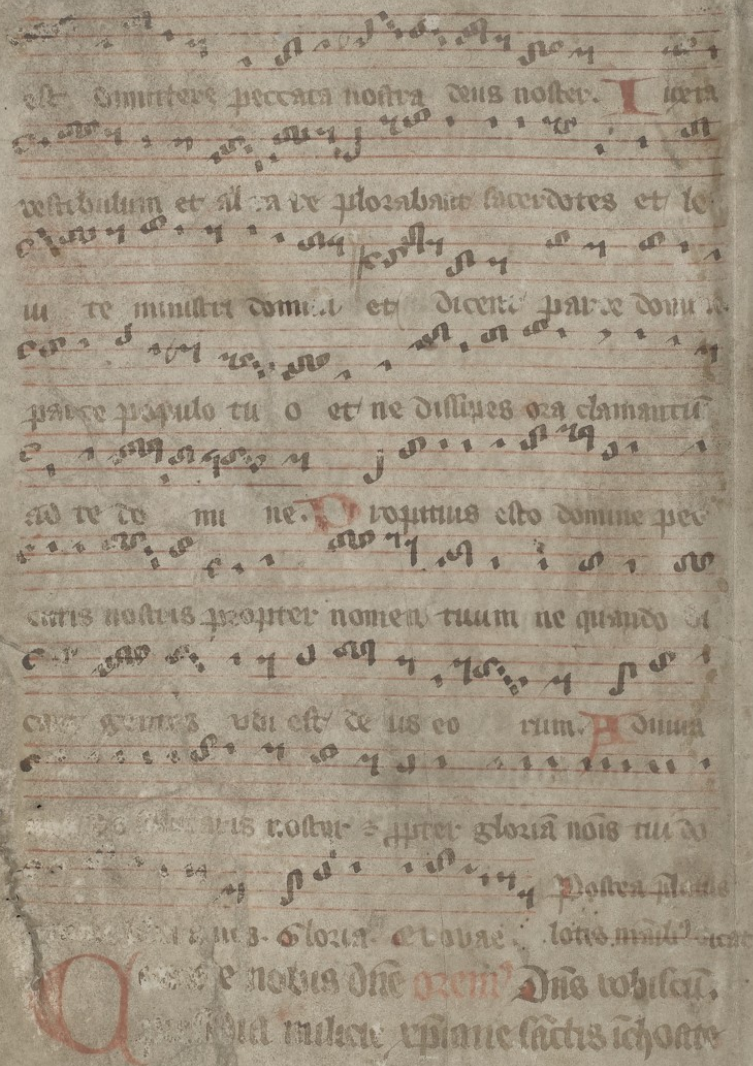 est dimittere peccata nostra deus noster. Iuxta
vestibulum et altare plorabant sacerdotes et le
ui te ministri domini et dicent parce domine
parce populo tu o et ne dissipes ora clamantiū
ad te do mi ne. Propitius esto domine pec
catis nostris propter nomen tuum ne quando di
cant gentes vbi est de us eo rum. Adiuua
taris noster ⁊ ꝓpter gloriā noīs tui do
Postea
Gloria. Euouae. lotis
e nobis dn̄e orem᷒ Dn̄s vobiscū.
milicie xp̄iane sāctis īchoare